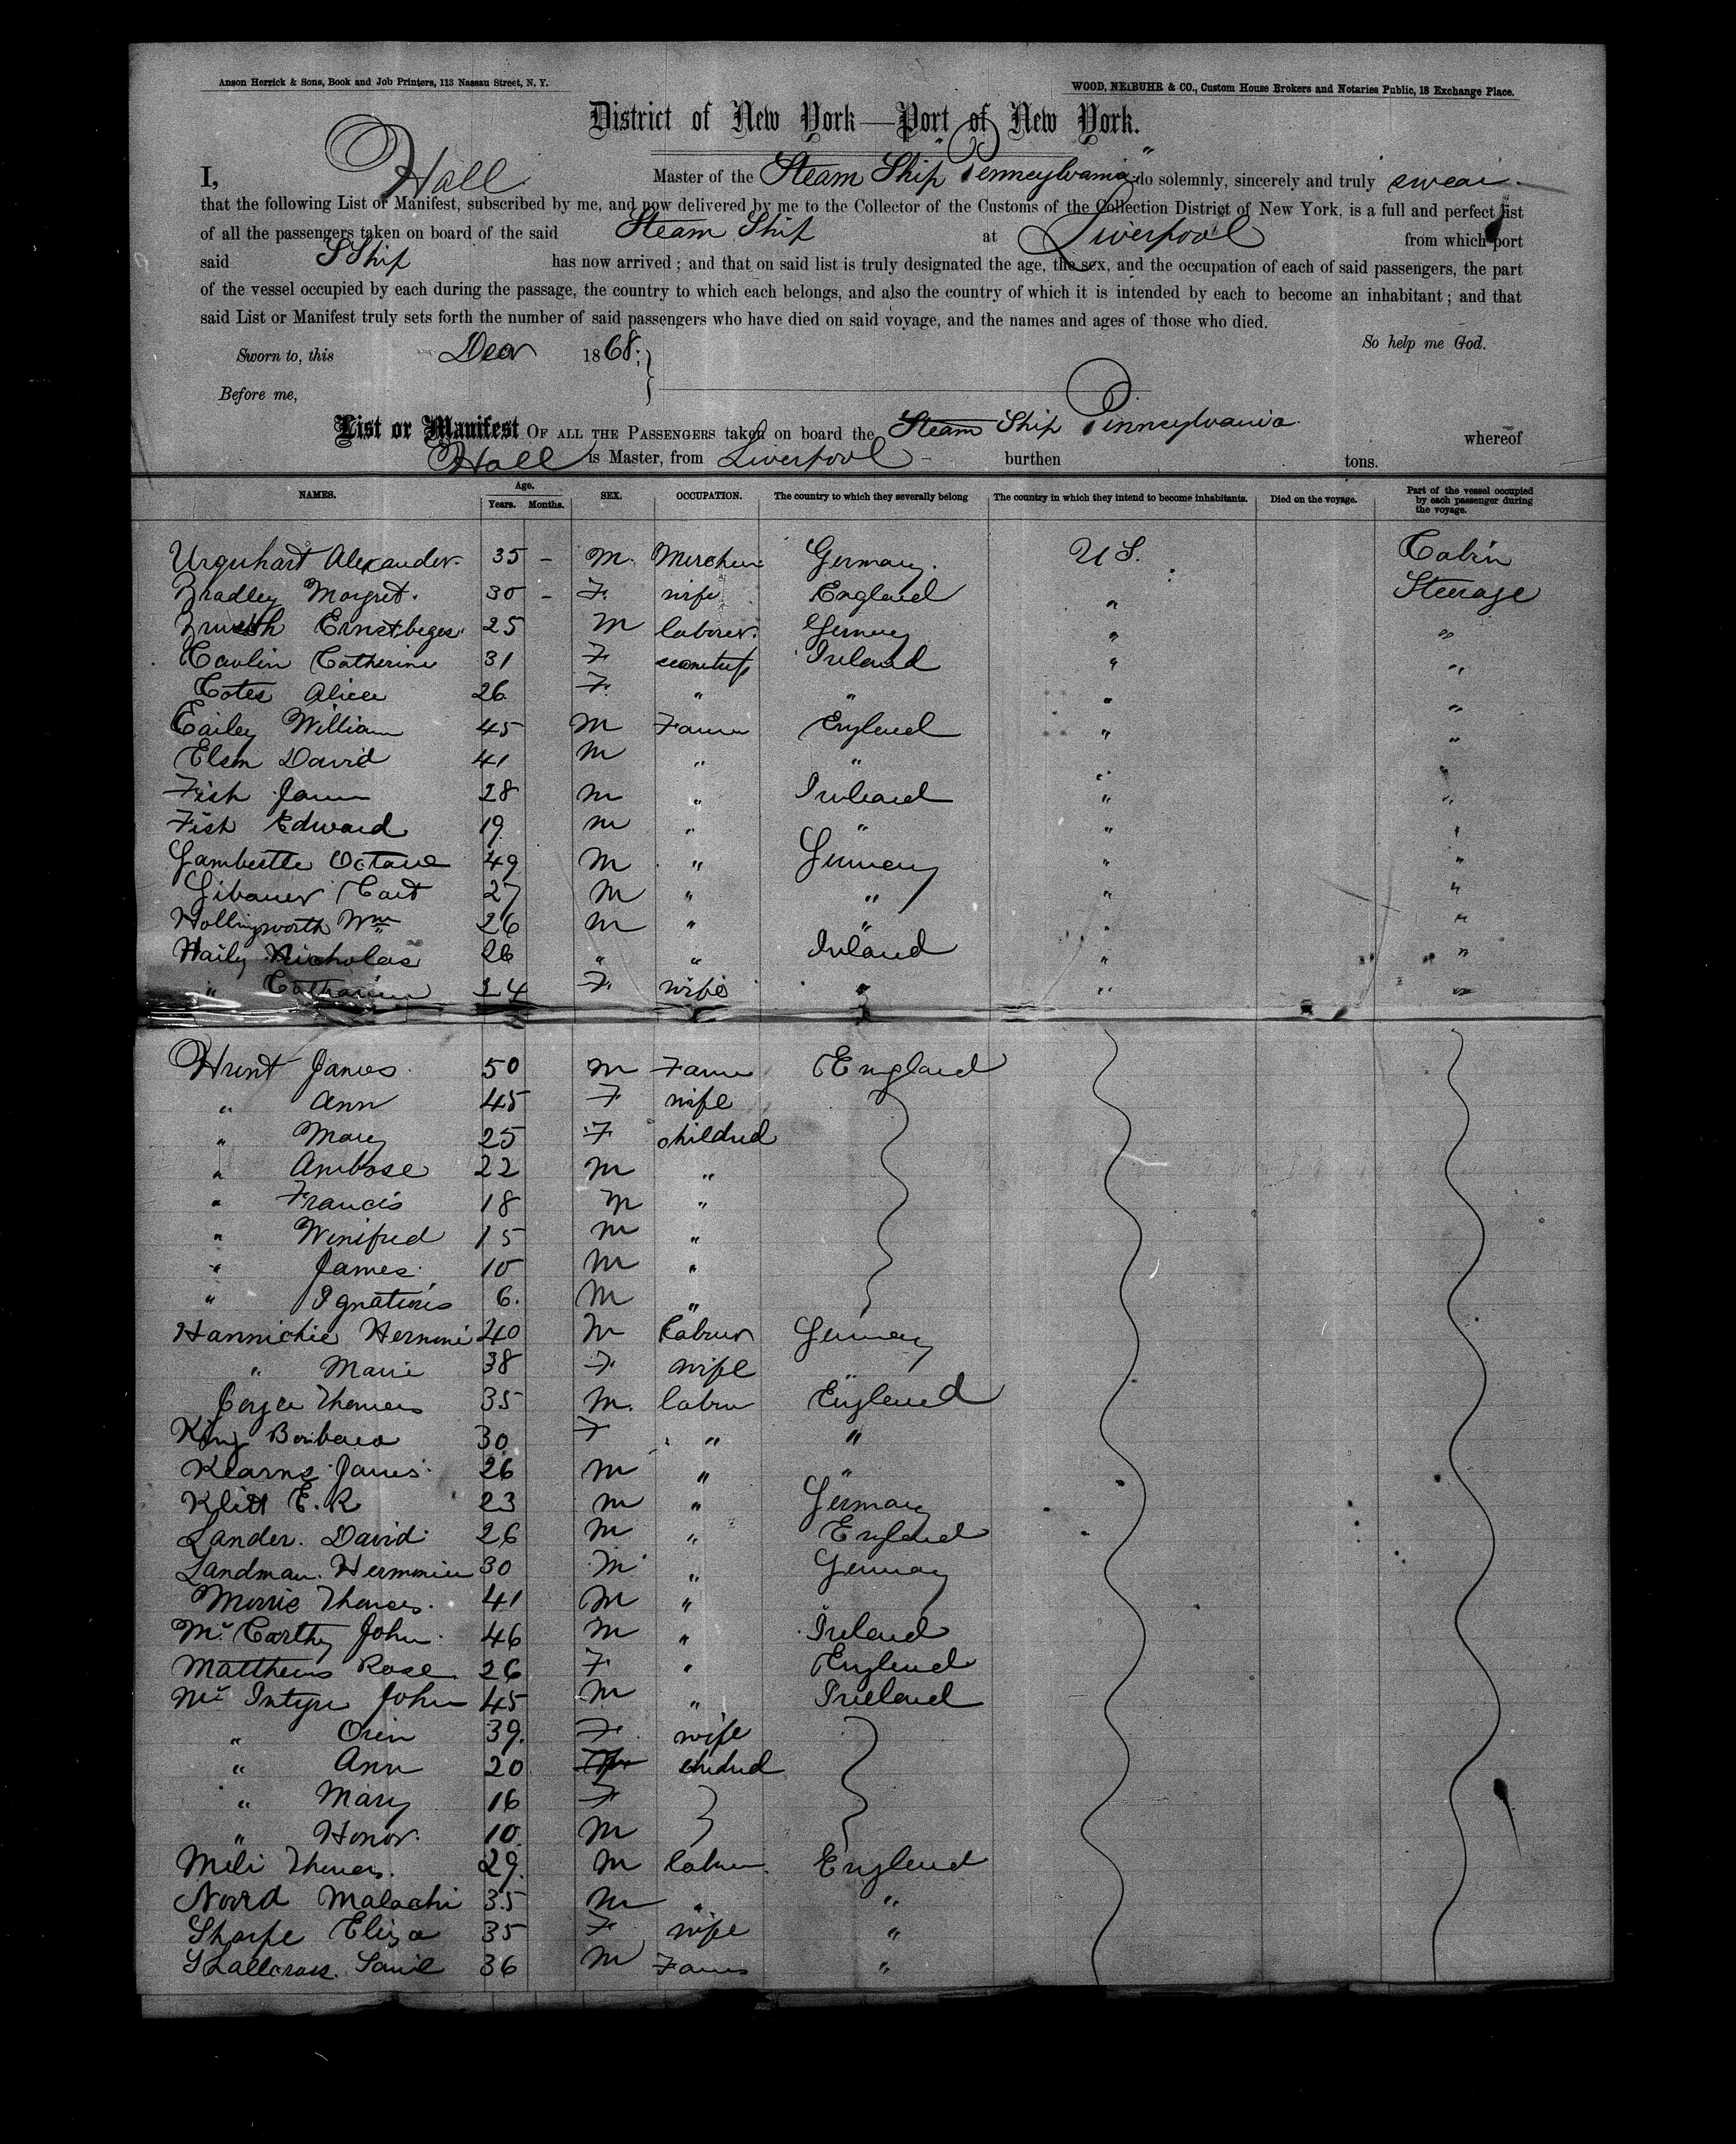 Anson Herrick & Sons, Book and Job Printers, 113 Nassau Street, N. Y.
WOOD, NEIBUHR & CO., Custom House Brokers and Notaries Public, 18 Exchange Place.
District of New York—Port of New York.
I, Hall Master of the Steam Ship "Pennsylvania" do solemnly, sincerely and truly swear
that the following List or Manifest, subscribed by me, and now delivered by me to the Collector of the Customs of the Collection District of New York, is a full and perfect list
of all the passengers taken on board of the said Steam Ship at Liverpool from which port
said SShip has now arrived ; and that on said list is truly designated the age, the sex, and the occupation of each of said passengers, the part
of the vessel occupied by each during the passage, the country to which each belongs, and also the country of which it is intended by each to become an inhabitant ; and that
said List or Manifest truly sets forth the number of said passengers who have died on said voyage, and the names and ages of those who died.
So help me God.
Sworn to, this 1868
Before me,
List or Manifest OF ALL THE PASSENGERS taken on board the Steam Ship Pennsylvania whereof
Hall is Master, from Liverpool burthen tons.
NAMES. Age. Years. Months. SEX. OCCUPATION. The country to which they severally belong The country in which they intend to become inhabitants. Died on the voyage. Part of the vessel occupied by each passenger during the voyage.
Urquhart Alexander 35 - M. Germany. U S. Cabin
Bradley Margret 30 - F. wife England " Steerage
25 M laborer Germany " "
Catherine 31 F Ireland " "
Cotes Alice 26 F. " " " "
Cailey William 45 M Farmer England " "
Elsen David 41 M " " " "
Fish James 28 M " Ireland " "
Fish Edward 19 M " " " "
Octave 49 M " Germany " "
27 M " " " "
Hollingsworth Wm 26 M " " " "
Haily Nicholas 26 " " Ireland " "
" Catharine 24 F. wife " " "
Hunt James 50 M Farmer England
" Ann 45 F wife
" Mary 25 F children
" Ambose 22 M "
" Francis 18 M "
" Winifred 15 M "
" James 10 M "
" Ignatious 6. M "
Hannichie 40 M Labour Germany
" Marie 38 F wife
Joyce Thomas 35 M. labour England
King Barbara 30 F " "
Kearns James 26 M " "
Klitt E. R 23 M " Germany
Lander. David 26 M " England
Landman. 30 M " Germany
Morris Thomas. 41 M "
Mc Carthy John 46 M " Ireland
Matthews Rose 26 F " England
Mc Intyre John 45 M " Ireland
" Orin 39. F wife
" Ann 20 children
" Mary 16 F
" Honor 10 M
Thomas. 29. M labour England
Malachi 35 M " "
Sharpe Eliza 35 F wife "
Shallcross 36 M Farmer "